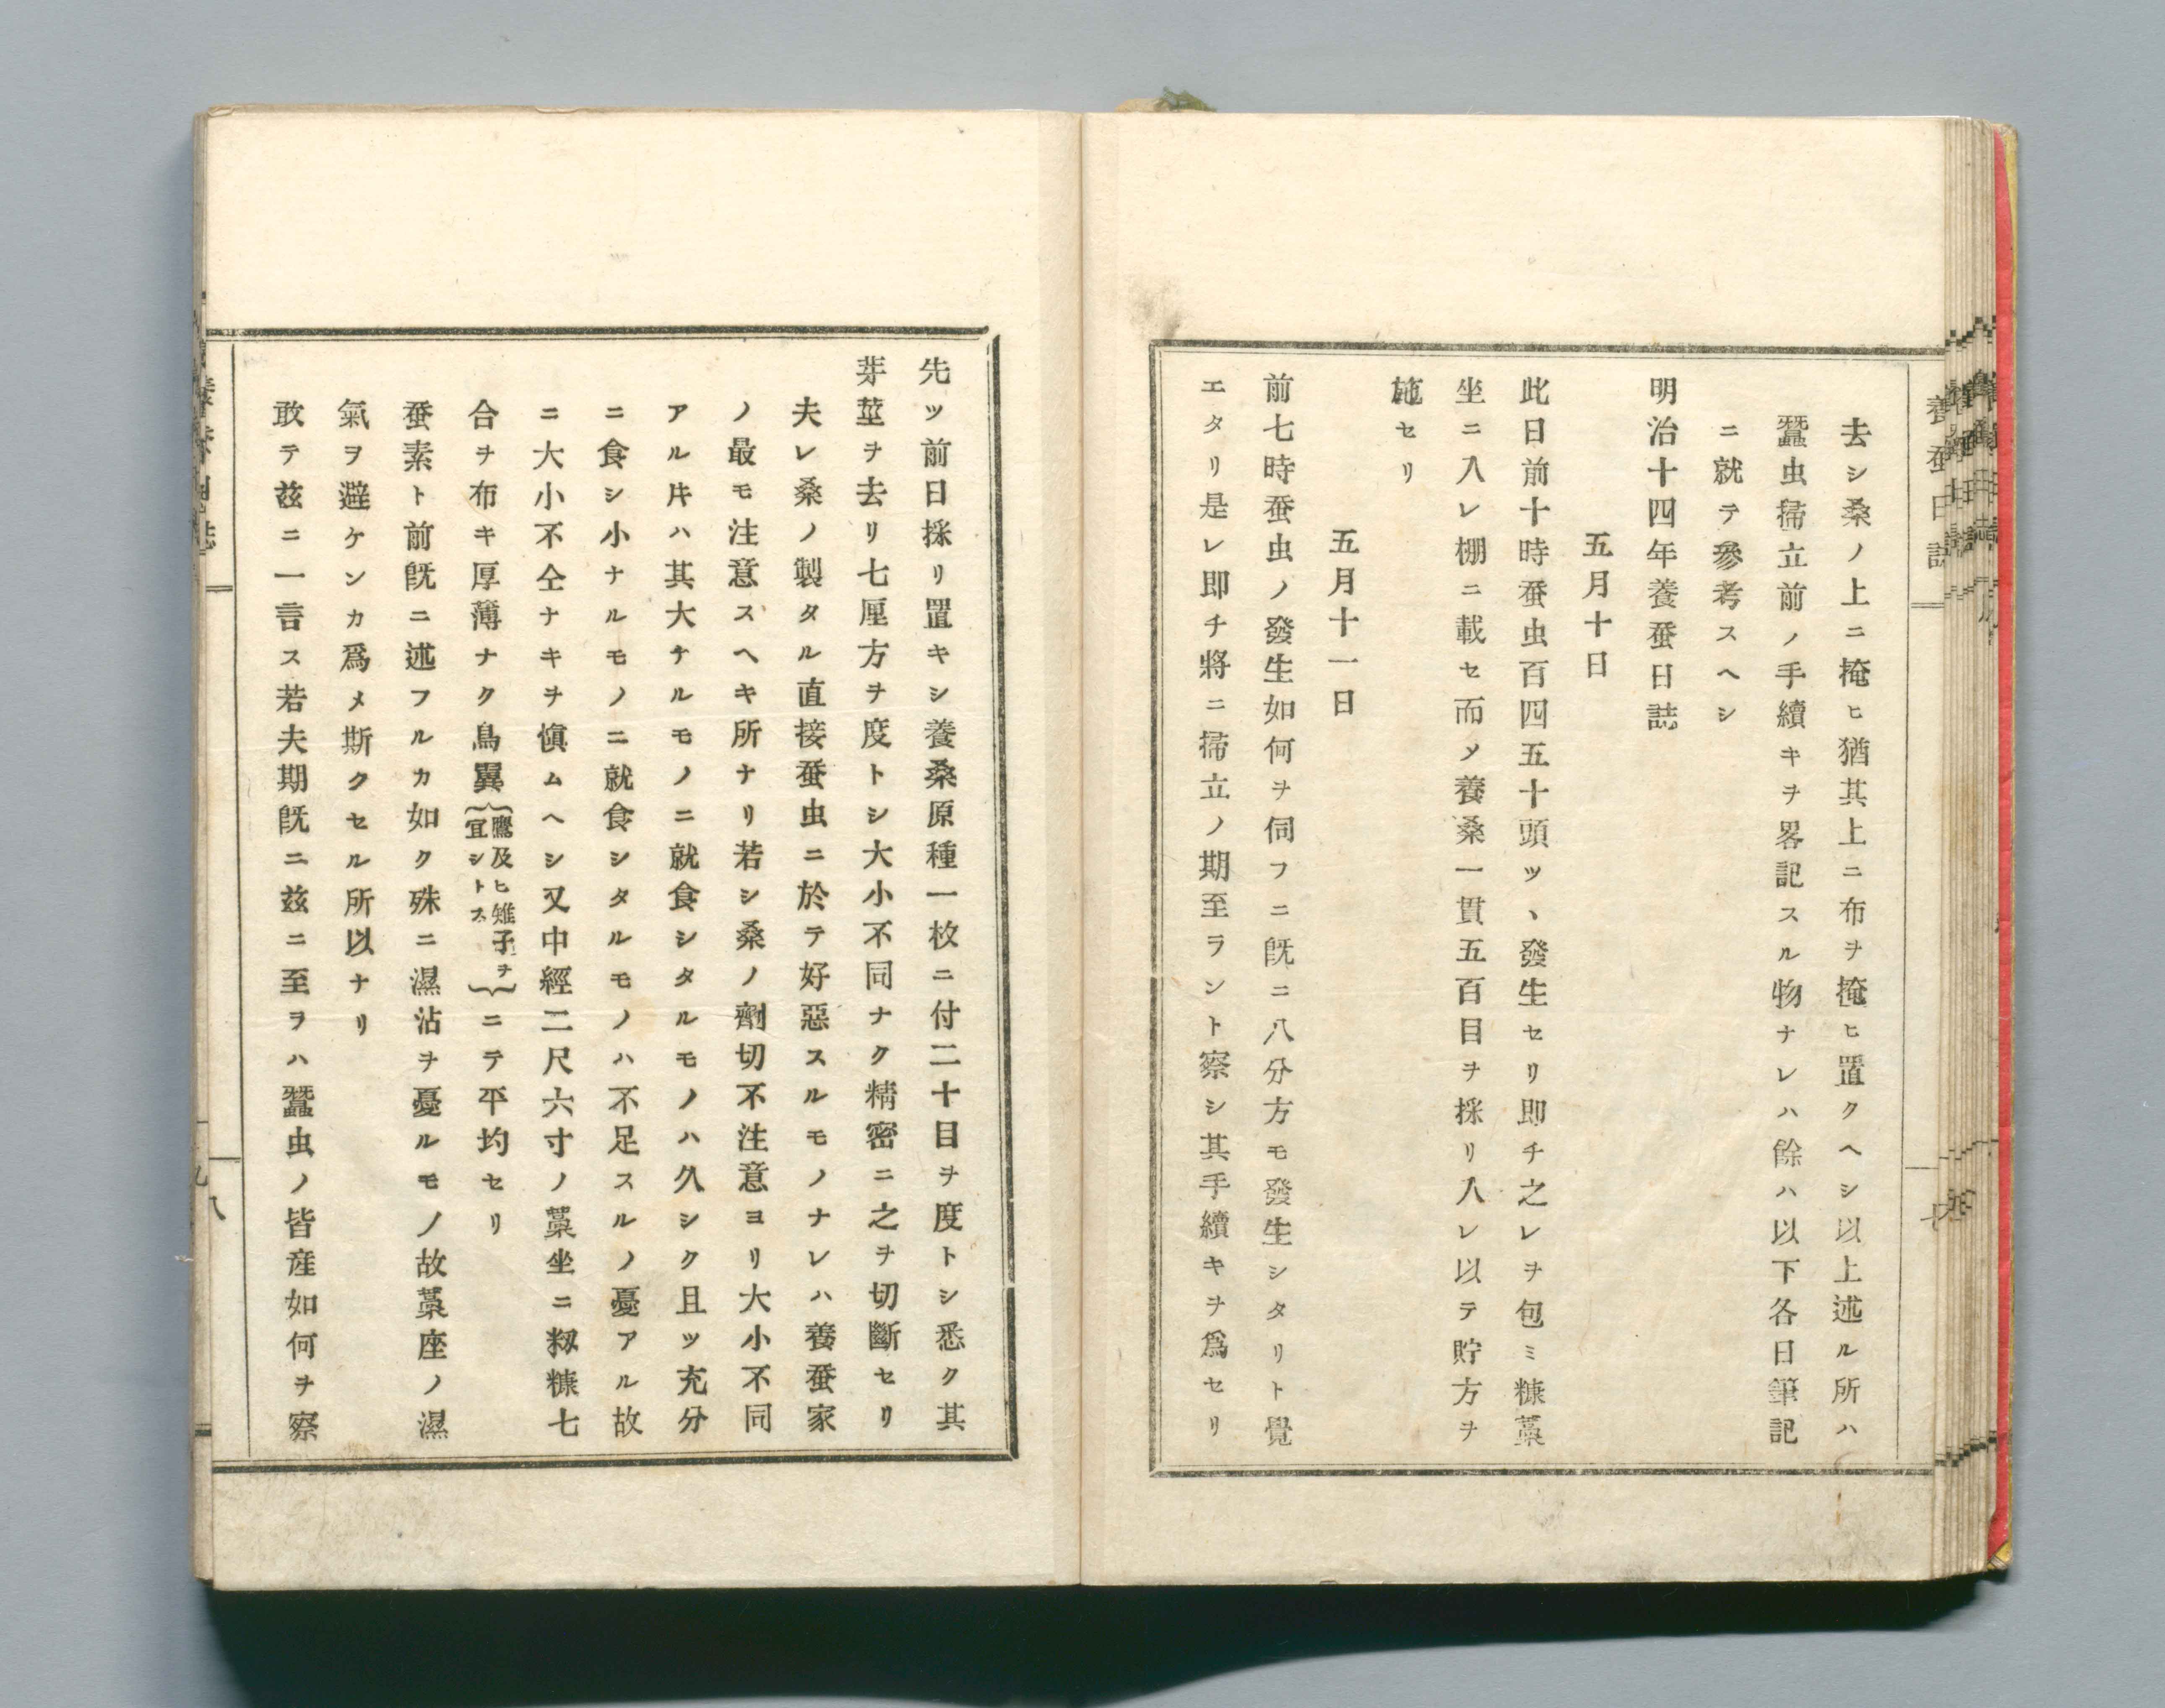 養蚕日誌
去シ桑ノ上ニ掩ヒ猶其上ニ布ヲ掩ヒ置クヘシ以上述ル所ハ
蠶虫掃立前ノ手續キヲ畧記スル物ナレハ餘ハ以下各日筆記
ニ就テ參考スヘシ
明治十四年養蚕日誌
五月十日
此日前十時蚕虫百四五十頭ツヽ發生セリ即チ之レヲ包ミ糠藁
坐ニ入レ棚ニ載セ而メ養桑一貫五百目ヲ採リ入レ以テ貯方ヲ
施セリ
五月十一日
前七時蚕虫ノ發生如何ヲ伺フニ旣ニ八分方モ發生シタリト覺
エタリ是レ即チ將ニ掃立ノ期至ラント察シ其手續キヲ爲セリ
先ツ前日採リ置キシ養桑原種一枚ニ付二十目ヲ度トシ悉ク其
芽莖ヲ去リ七厘方ヲ度トシ大小不同ナク精密ニ之ヲ切斷セリ
夫レ桑ノ製タル直接蚕虫ニ於テ好惡スルモノナレハ養蚕家
ノ最モ注意スヘキ所ナリ若シ桑ノ劑切不注意ヨリ大小不同
アル片ハ其大ナルモノニ就食シタルモノハ久シク且ツ充分
ニ食シ小ナルモノニ就食シタルモノハ不足スルノ憂アル故
ニ大小不仝ナキヲ愼ムヘシ又中經二尺六寸ノ藁坐ニ籾糠七
合ヲ布キ厚薄ナク鳥翼｛鷹及ヒ雉子ヲ宜シトス｝ニテ平均セリ
蚕素ト前旣ニ述フルカ如ク殊ニ濕沾ヲ憂ルモノ故藁座ノ濕
氣ヲ避ケンカ爲メ斯クセル所以ナリ
敢テ玆ニ一言ス若夫期旣ニ玆ニ至ヲハ蠶虫ノ皆産如何ヲ察
八